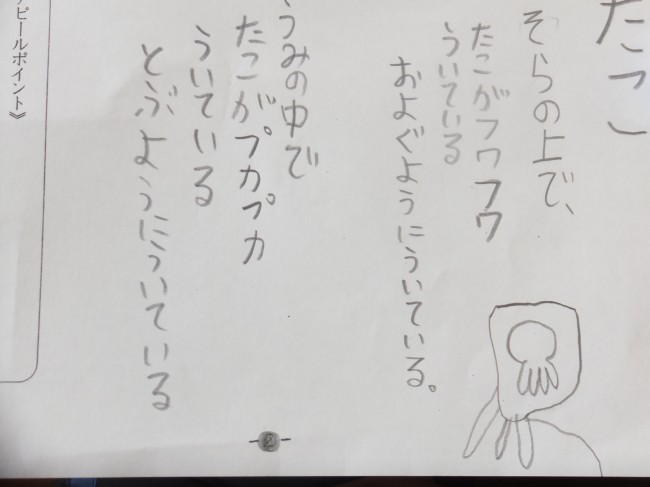 たこ
そらの上で、
たこがフワフワ
ういている
およぐようにういている。
うみの中で
たこがプカプカ
ういている
とぶようにういている
アピールポイント》